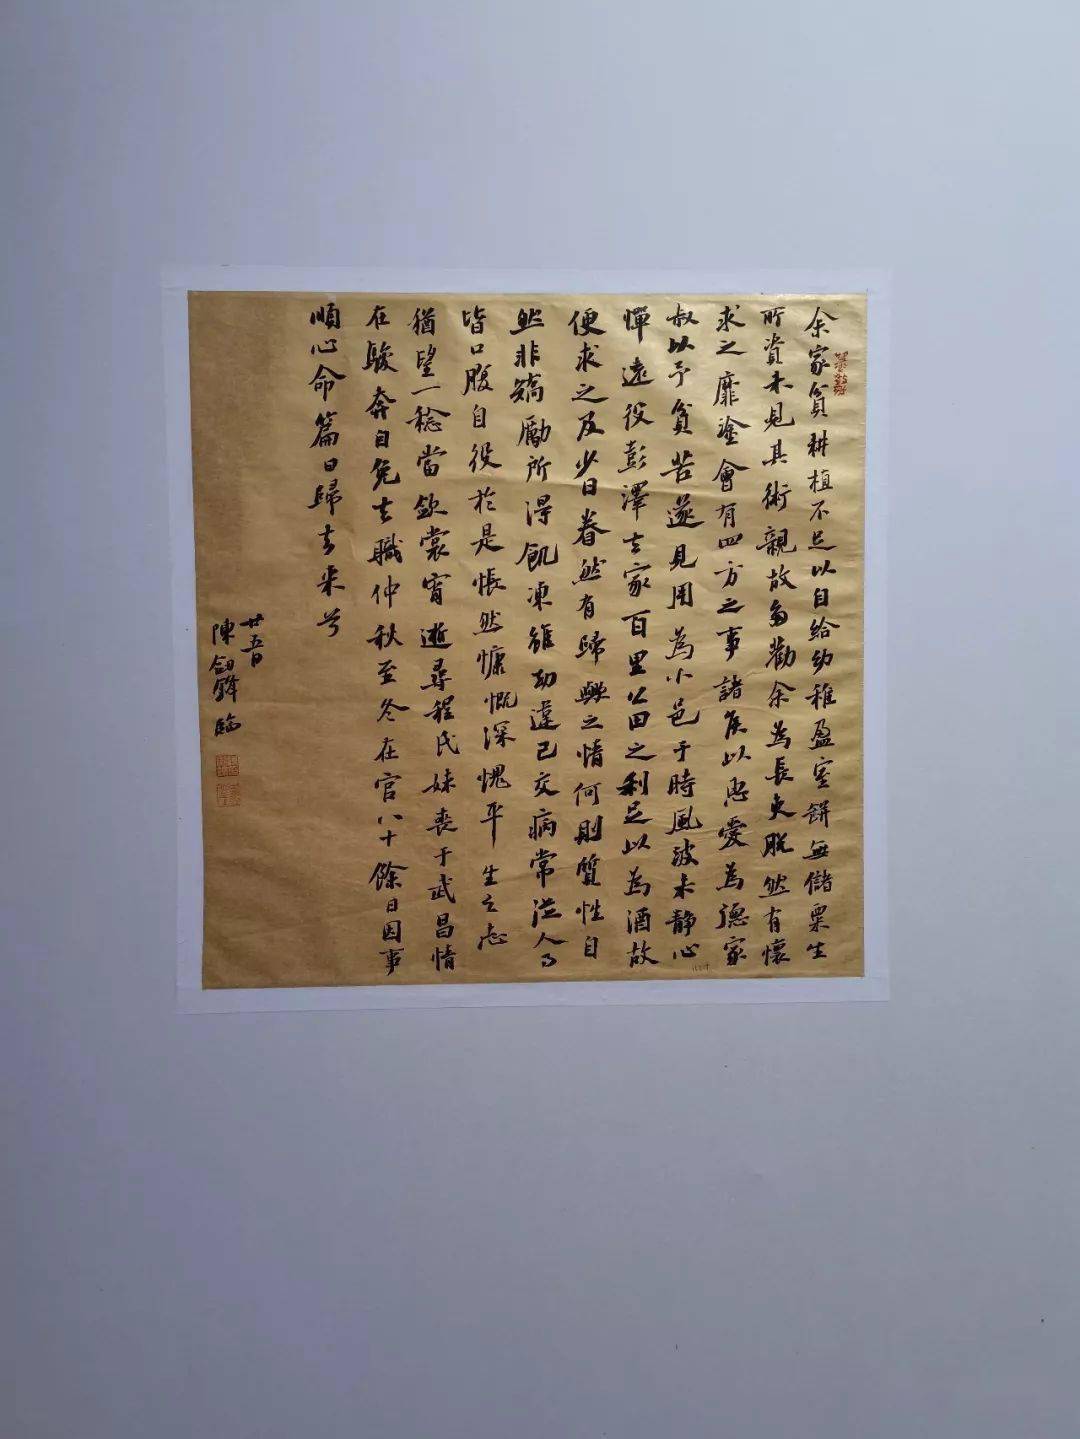 余家貧耕植不足以自給幼稚盈室缾無儲粟生
所資未見其術親故多勸余為長吏脫然有懷
求之靡塗會有四方之事諸侯以惠愛為德家
叔以予貧苦遂見用為小邑于時風波未静心
憚遠役彭澤去家百里公田之利足以為酒故
便求之及少日眷然有歸歟之情何則質性自
然非矯勵所得飢凍雖切違己交病常從人事
皆口腹自役於是悵然慷慨深愧平生之志
猶望一稔當斂裳宵逝尋程氏妹喪于武昌情
在駿奔自免去職仲秋至冬在官八十餘日因事
順心命篇曰歸去来兮
廿五日
陳劍鋒臨